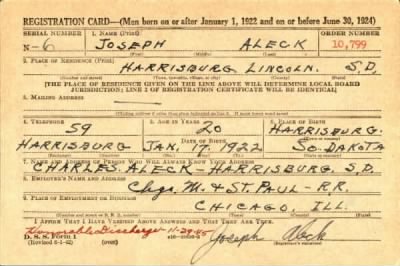 REGISTRATION CARD—(Men born on or after January 1, 1922 and on or before June 30, 1924)
SERIAL NUMBER 1. NAME (Print) ORDER NUMBER
N-6 JOSEPH ALECK 10,799
(First) (Middle) (Last)
2. PLACE OF RESIDENCE (Print)
HARRISBURG LINCOLN. S.D.
(Number and street) (Town, township, village, or city) (County) (State)
[THE PLACE OF RESIDENCE GIVEN ON THE LINE ABOVE WILL DETERMINE LOCAL BOARD
JURISDICTION; LINE 2 OF REGISTRATION CERTIFICATE WILL BE IDENTICAL]
3. MAILING ADDRESS
—
[Mailing address if other than place indicated on line 2. If same insert word same]
4. TELEPHONE 5. AGE IN YEARS 6. PLACE OF BIRTH
59 20 HARRISBURG.
DATE OF BIRTH
HARRISBURG JAN. 17. 1922 SO. DAKOTA
7. NAME AND ADDRESS OF PERSON WHO WILL ALWAYS KNOW YOUR ADDRESS
CHARLES. ALECK - HARRISBURG, S.D.
8. EMPLOYER'S NAME AND ADDRESS
Chgo. M. & ST. PAUL - R.R.
9. PLACE OF EMPLOYMENT OR BUSINESS
CHICAGO, ILL.
(Number and street or R. F. D. number) (Town) (County) (State)
I AFFIRM THAT I HAVE VERIFIED ABOVE ANSWERS AND THAT THEY ARE TRUE.
Honorable Discharge 11-29-45
D. S. S. Form 1 Joseph Aleck
(Revised 6-1-42) (over)